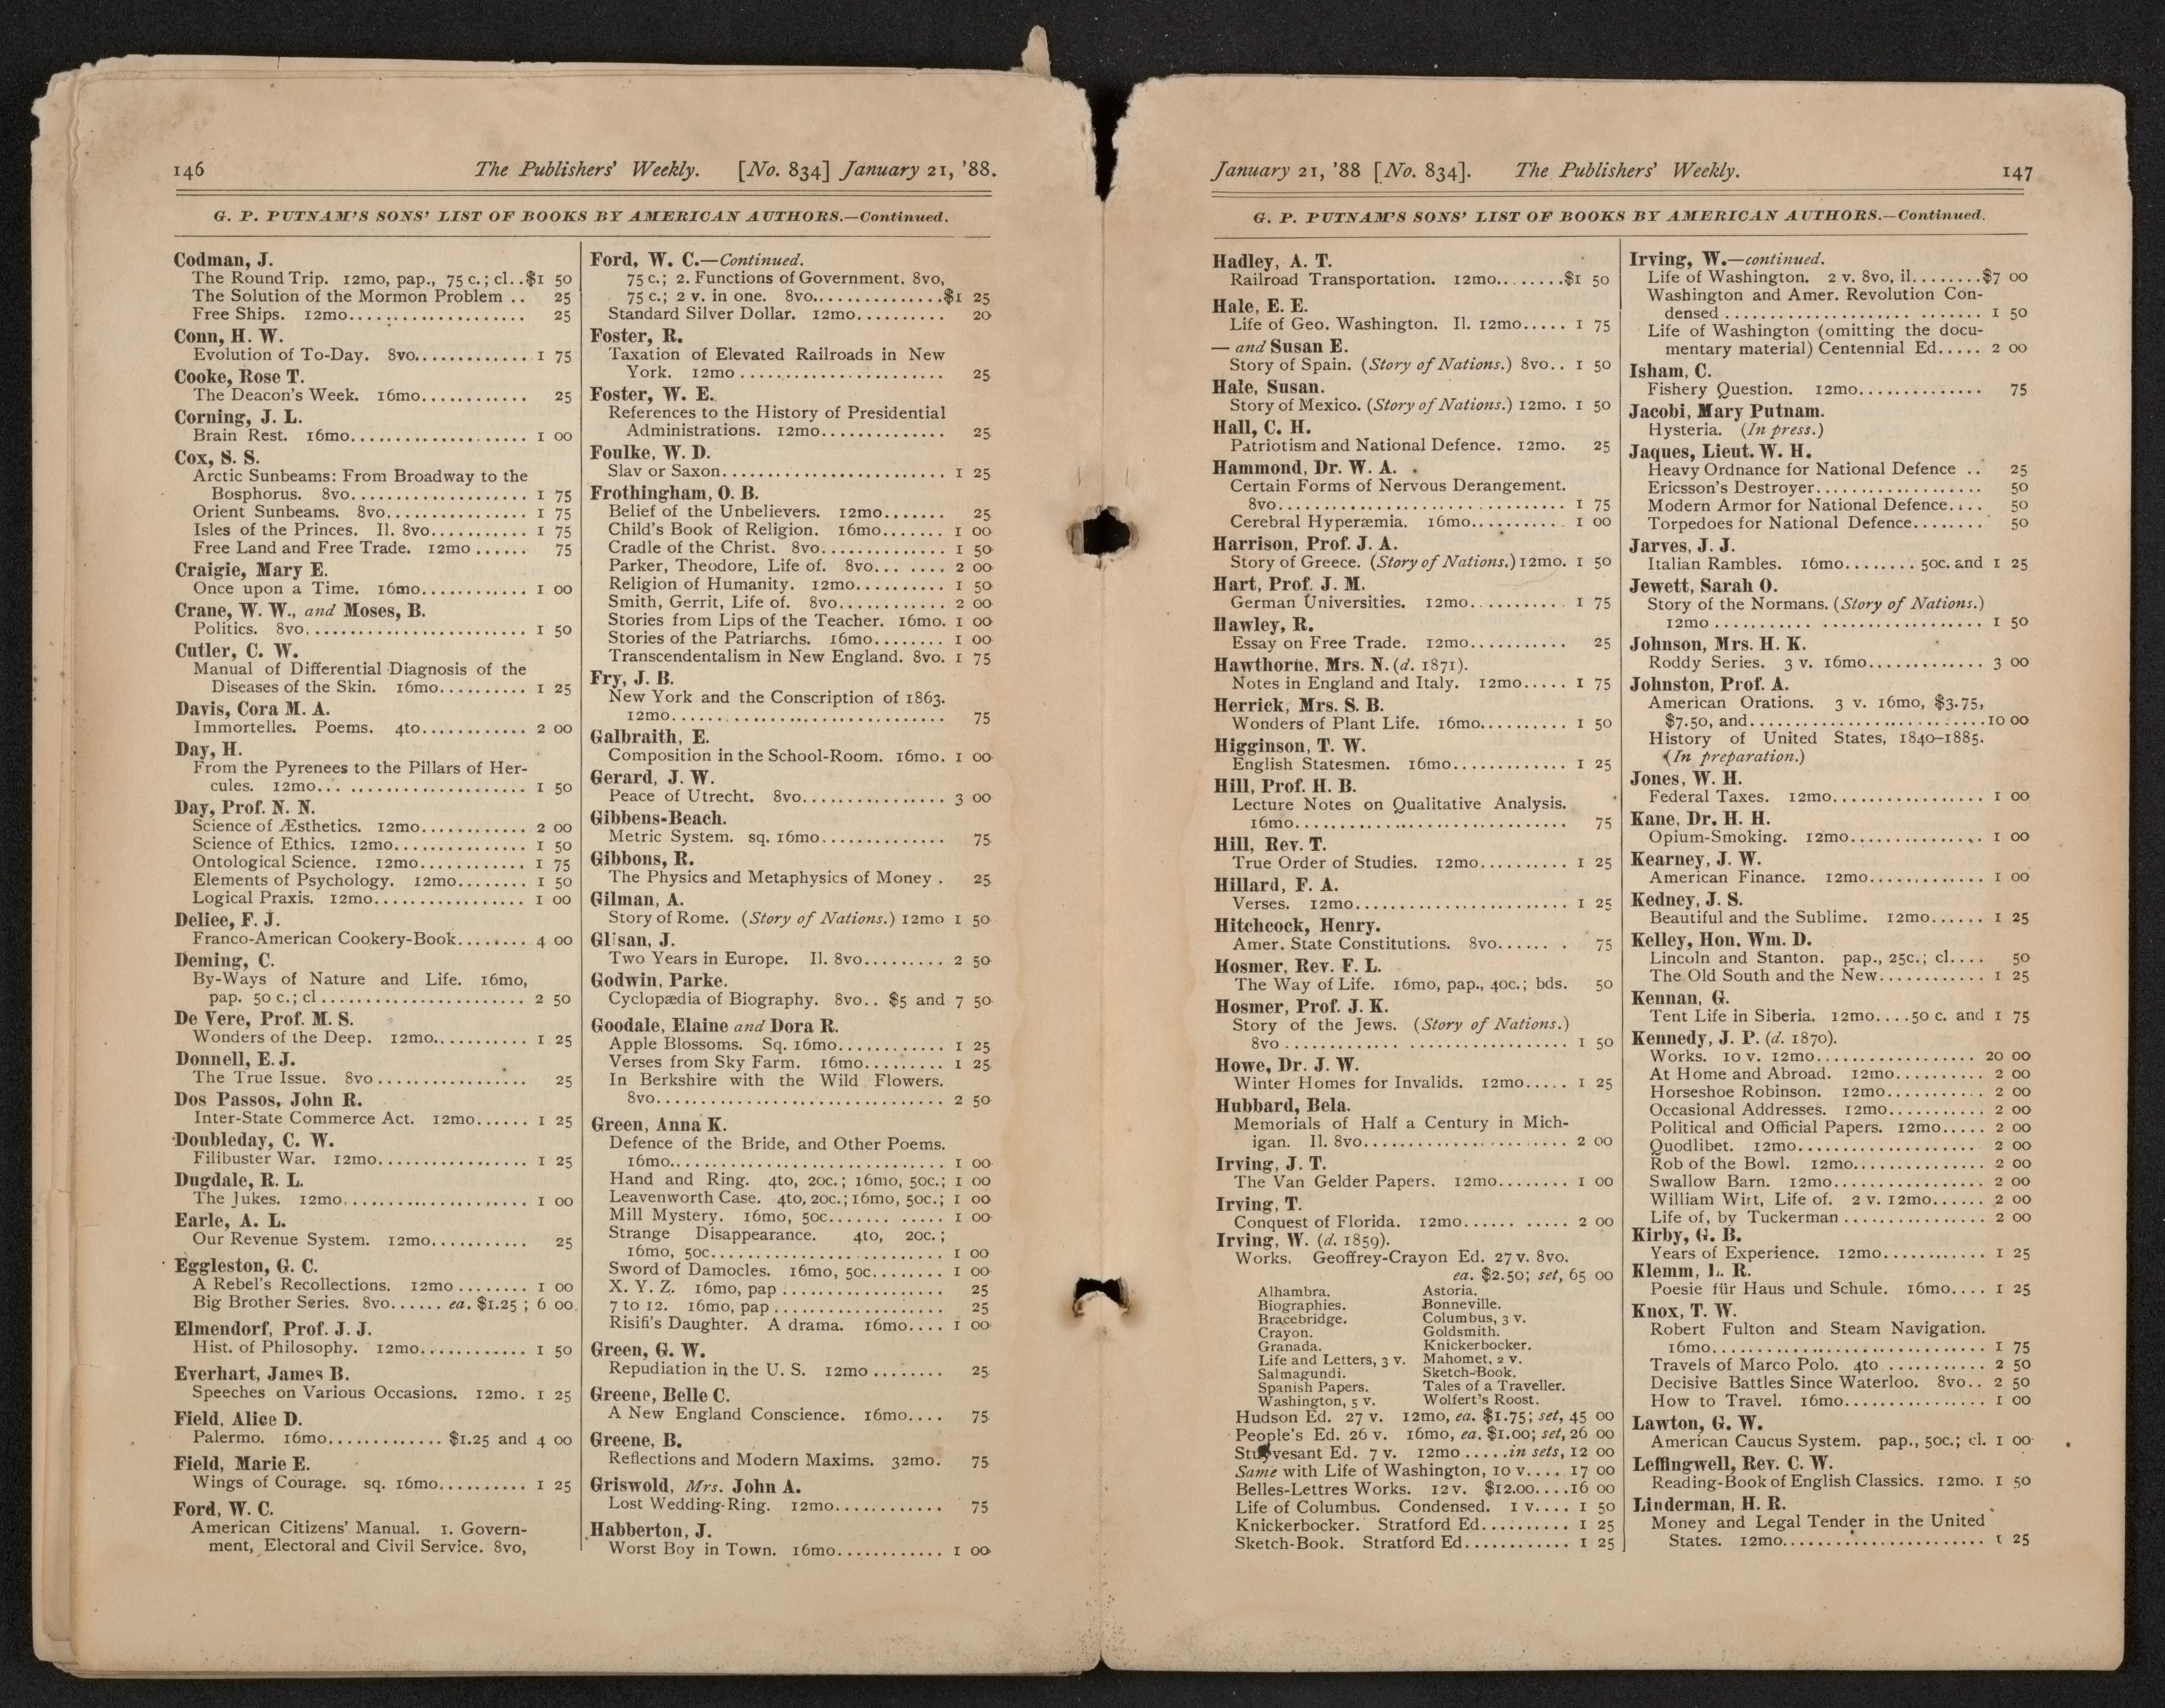 146 The Publishers' Weekly. [No. 834] January 21, '88.
G. P. PUTNAM'S SONS' LIST OF BOOKS BY AMERICAN AUTHORS.—Continued.
Codman, J.
The Round Trip. 12mo, pap., 75 c.; cl..$1 50
The Solution of the Mormon Problem .. 25
Free Ships. 12mo.................... 25
Conn, H. W.
Evolution of To-Day. 8vo............. 1 75
Cooke, Rose T.
The Deacon's Week. 16mo............ 25
Corning, J. L.
Brain Rest. 16mo.................... 1 00
Cox, S. S.
Arctic Sunbeams: From Broadway to the
Bosphorus. 8vo.................... 1 75
Orient Sunbeams. 8vo................ 1 75
Isles of the Princes. Il. 8vo........... 1 75
Free Land and Free Trade. 12mo ...... 75
Craigie, Mary E.
Once upon a Time. 16mo............ 1 00
Crane, W. W., and Moses, B.
Politics. 8vo........................ 1 50
Cutler, C. W.
Manual of Differential Diagnosis of the
Diseases of the Skin. 16mo.......... 1 25
Davis, Cora M. A.
Immortelles. Poems. 4to............ 2 00
Day, H.
From the Pyrenees to the Pillars of Her-
cules. 12mo... .................... 1 50
Day, Prof. N. N.
Science of Æsthetics. 12mo............ 2 00
Science of Ethics. 12mo............... 1 50
Ontological Science. 12mo............ 1 75
Elements of Psychology. 12mo........ 1 50
Logical Praxis. 12mo................. 1 00
Deliee, F. J.
Franco-American Cookery-Book........ 4 00
Deming, C.
By-Ways of Nature and Life. 16mo,
pap. 50 c.; cl....................... 2 50
De Vere, Prof. M. S.
Wonders of the Deep. 12mo........... 1 25
Donnell, E. J.
The True Issue. 8vo ................ 25
Dos Passos, John R.
Inter-State Commerce Act. 12mo...... 1 25
Doubleday, C. W.
Filibuster War. 12mo................. 1 25
Dugdale, R. L.
The Jukes. 12mo.................... 1 00
Earle, A. L.
Our Revenue System. 12mo........... 25
Eggleston, G. C.
A Rebel's Recollections. 12mo ........ 1 00
Big Brother Series. 8vo...... ea. $1.25 ; 6 00
Elmendorf, Prof. J. J.
Hist. of Philosophy. 12mo............ 1 50
Everhart, James B.
Speeches on Various Occasions. 12mo. 1 25
Field, Alice D.
Palermo. 16mo............. $1.25 and 4 00
Field, Marie E.
Wings of Courage. sq. 16mo.......... 1 25
Ford, W. C.
American Citizens' Manual. 1. Govern-
ment, Electoral and Civil Service. 8vo,
Ford, W. C.—Continued.
75 c.; 2. Functions of Government. 8vo,
75 c.; 2 v. in one. 8vo...............$1 25
Standard Silver Dollar. 12mo.......... 20
Foster, R.
Taxation of Elevated Railroads in New
York. 12mo ....................... 25
Foster, W. E.
References to the History of Presidential
Administrations. 12mo.............. 25
Foulke, W. D.
Slav or Saxon......................... 1 25
Frothingham, O. B.
Belief of the Unbelievers. 12mo....... 25
Child's Book of Religion. 16mo....... 1 00
Cradle of the Christ. 8vo.............. 1 50
Parker, Theodore, Life of. 8vo... .... 2 00
Religion of Humanity. 12mo.......... 1 50
Smith, Gerrit, Life of. 8vo............ 2 00
Stories from Lips of the Teacher. 16mo. 1 00
Stories of the Patriarchs. 16mo........ 1 00
Transcendentalism in New England. 8vo. 1 75
Fry, J. B.
New York and the Conscription of 1863.
12mo............................... 75
Galbraith, E.
Composition in the School-Room. 16mo. 1 00
Gerard, J. W.
Peace of Utrecht. 8vo................ 3 00
Gibbens-Beach.
Metric System. sq. 16mo.............. 75
Gibbons, R.
The Physics and Metaphysics of Money . 25
Gilman, A.
Story of Rome. (Story of Nations.) 12mo 1 50
Glisan, J.
Two Years in Europe. Il. 8vo......... 2 50
Godwin, Parke.
Cyclopædia of Biography. 8vo.. $5 and 7 50
Goodale, Elaine and Dora R.
Apple Blossoms. Sq. 16mo............ 1 25
Verses from Sky Farm. 16mo......... 1 25
In Berkshire with the Wild Flowers.
8vo................................ 2 50
Green, Anna K.
Defence of the Bride, and Other Poems.
16mo............................... 1 00
Hand and Ring. 4to, 20c.; 16mo, 50c.; 1 00
Leavenworth Case. 4to, 20c.; 16mo, 50c.; 1 00
Mill Mystery. 16mo, 50c....... ..... 1 00
Strange Disappearance. 4to, 20c.;
16mo, 50c.......................... 1 00
Sword of Damocles. 16mo, 50c........ 1 00
X. Y. Z. 16mo, pap .................. 25
7 to 12. 16mo, pap ................... 25
Risifi's Daughter. A drama. 16mo.... 1 00
Green, G. W.
Repudiation in the U. S. 12mo ........ 25
Greene, Belle C.
A New England Conscience. 16mo.... 75
Greene, B.
Reflections and Modern Maxims. 32mo. 75
Griswold, Mrs. John A.
Lost Wedding-Ring. 12mo............ 75
Habberton, J.
Worst Boy in Town. 16mo............ 1 00
January 21, '88 [No. 834]. The Publishers' Weekly. 147
G. P. PUTNAM'S SONS' LIST OF BOOKS BY AMERICAN AUTHORS.—Continued.
Hadley, A. T.
Railroad Transportation. 12mo........$1 50
Hale, E. E.
Life of Geo. Washington. Il. 12mo..... 1 75
— and Susan E.
Story of Spain. (Story of Nations.) 8vo.. 1 50
Hale, Susan.
Story of Mexico. (Story of Nations.) 12mo. 1 50
Hall, C. H.
Patriotism and National Defence. 12mo. 25
Hammond, Dr. W. A.
Certain Forms of Nervous Derangement.
8vo................................. 1 75
Cerebral Hyperæmia. 16mo........... 1 00
Harrison, Prof. J. A.
Story of Greece. (Story of Nations.) 12mo. 1 50
Hart, Prof. J. M.
German Universities. 12mo........... 1 75
Hawley, R.
Essay on Free Trade. 12mo........... 25
Hawthorne, Mrs. N. (d. 1871).
Notes in England and Italy. 12mo..... 1 75
Herrick, Mrs. S. B.
Wonders of Plant Life. 16mo.......... 1 50
Higginson, T. W.
English Statesmen. 16mo............. 1 25
Hill, Prof. H. B.
Lecture Notes on Qualitative Analysis.
16mo............................... 75
Hill, Rev. T.
True Order of Studies. 12mo.......... 1 25
Hillard, F. A.
Verses. 12mo........................ 1 25
Hitchcock, Henry.
Amer. State Constitutions. 8vo...... . 75
Hosmer, Rev. F. L.
The Way of Life. 16mo, pap., 40c.; bds. 50
Hosmer, Prof. J. K.
Story of the Jews. (Story of Nations.)
8vo ............ .................. 1 50
Howe, Dr. J. W.
Winter Homes for Invalids. 12mo..... 1 25
Hubbard, Bela.
Memorials of Half a Century in Mich-
igan. Il. 8vo....................... 2 00
Irving, J. T.
The Van Gelder Papers. 12mo........ 1 00
Irving, T.
Conquest of Florida. 12mo...... ..... 2 00
Irving, W. (d. 1859).
Works. Geoffrey-Crayon Ed. 27 v. 8vo.
ea. $2.50; set, 65 00
Alhambra. Astoria.
Biographies. Bonneville.
Bracebridge. Columbus, 3 v.
Crayon. Goldsmith.
Granada. Knickerbocker.
Life and Letters, 3 v. Mahomet, 2 v.
Salmagundi. Sketch-Book.
Spanish Papers. Tales of a Traveller.
Washington, 5 v. Wolfert's Roost.
Hudson Ed. 27 v. 12mo, ea. $1.75; set, 45 00
People's Ed. 26 v. 16mo, ea. $1.00; set, 26 00
Stuyvesant Ed. 7 v. 12mo .....in sets, 12 00
Same with Life of Washington, 10 v.... 17 00
Belles-Lettres Works. 12 v. $12.00....16 00
Life of Columbus. Condensed. 1 v.... 1 50
Knickerbocker. Stratford Ed.......... 1 25
Sketch-Book. Stratford Ed............ 1 25
Irving, W.—continued.
Life of Washington. 2 v. 8vo, il........$7 00
Washington and Amer. Revolution Con-
densed ..................... ....... 1 50
Life of Washington (omitting the docu-
mentary material) Centennial Ed..... 2 00
Isham, C.
Fishery Question. 12mo.............. 75
Jacobi, Mary Putnam.
Hysteria. (In press.)
Jaques, Lieut. W. H.
Heavy Ordnance for National Defence .. 25
Ericsson's Destroyer.................. 50
Modern Armor for National Defence.... 50
Torpedoes for National Defence........ 50
Jarves, J. J.
Italian Rambles. 16mo........ 50c. and 1 25
Jewett, Sarah O.
Story of the Normans. (Story of Nations.)
12mo ........... .................. 1 50
Johnson, Mrs. H. K.
Roddy Series. 3 v. 16mo............. 3 00
Johnston, Prof. A.
American Orations. 3 v. 16mo, $3.75,
$7.50, and...........................10 00
History of United States, 1840–1885.
(In preparation.)
Jones, W. H.
Federal Taxes. 12mo................. 1 00
Kane, Dr. H. H.
Opium-Smoking. 12mo............... 1 00
Kearney, J. W.
American Finance. 12mo............. 1 00
Kedney, J. S.
Beautiful and the Sublime. 12mo...... 1 25
Kelley, Hon. Wm. D.
Lincoln and Stanton. pap., 25c.; cl.... 50
The Old South and the New............ 1 25
Kennan, G.
Tent Life in Siberia. 12mo....50 c. and 1 75
Kennedy, J. P. (d. 1870).
Works. 10 v. 12mo.................. 20 00
At Home and Abroad. 12mo.......... 2 00
Horseshoe Robinson. 12mo........... 2 00
Occasional Addresses. 12mo........... 2 00
Political and Official Papers. 12mo..... 2 00
Quodlibet. 12mo.................... 2 00
Rob of the Bowl. 12mo.............. 2 00
Swallow Barn. 12mo................. 2 00
William Wirt, Life of. 2 v. 12mo...... 2 00
Life of, by Tuckerman ................ 2 00
Kirby, G. B.
Years of Experience. 12mo............ 1 25
Klemm, L. R.
Poesie für Haus und Schule. 16mo.... 1 25
Knox, T. W.
Robert Fulton and Steam Navigation.
16mo............................... 1 75
Travels of Marco Polo. 4to ........... 2 50
Decisive Battles Since Waterloo. 8vo.. 2 50
How to Travel. 16mo................ 1 00
Lawton, G. W.
American Caucus System. pap., 50c.; cl. 1 00
Leffingwell, Rev. C. W.
Reading-Book of English Classics. 12mo. 1 50
Linderman, H. R.
Money and Legal Tender in the United
States. 12mo....................... 1 25